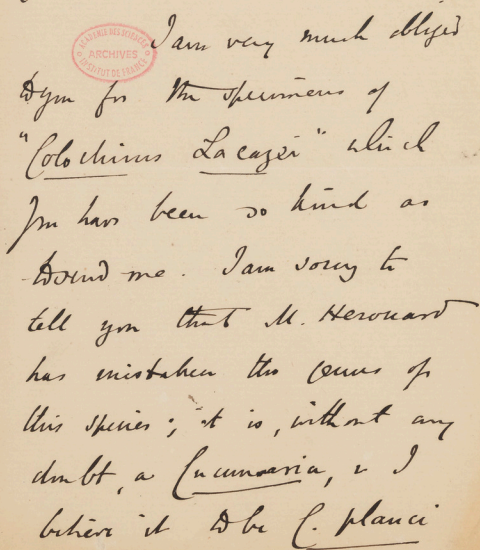 ACADÉMIE DES SCIENCES
ARCHIVES
INSTITUT DE FRANCE
I am very much obliged
to you for the specimens of
"Colochirus Lacazei" which
you have been so kind as
to send me. I am sorry to
tell you that M. Herouard
has mistaken the genus of
this species; it is, without any
doubt, a Cucumaria, & I
believe it to be C. planci